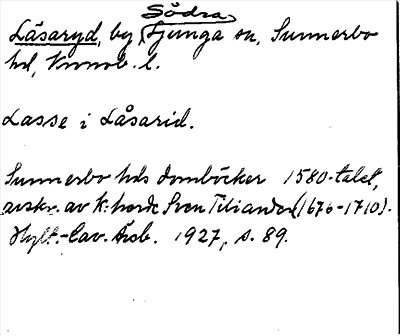 Södra
Låsaryd, by, Ljunga sn, Sunnerbo
hd, Kronob. l.
Lasse i Låsarid.
Sunnerbo hds domböcker 1580-talet,
avskr. av k:herde Sven Tiliander (1676-1710).
Hylt.-Cav. Årsb. 1927, s. 89.